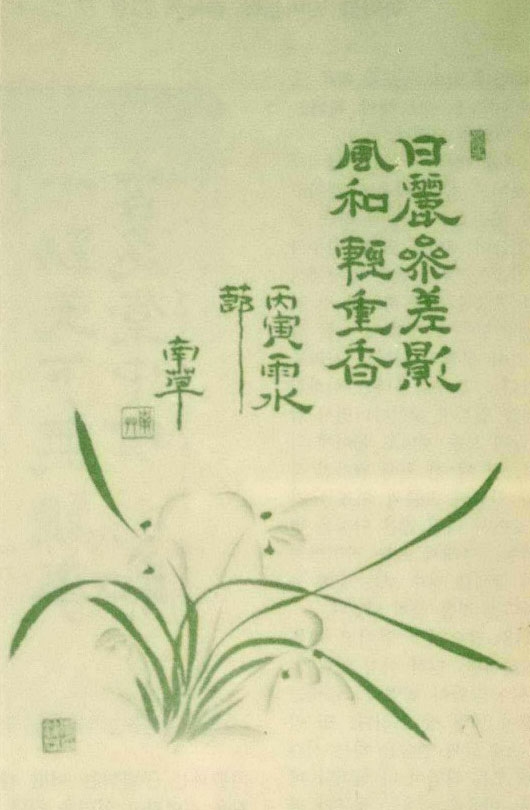 日麗參差影
風和輕重香
丙寅雨水
節
南草